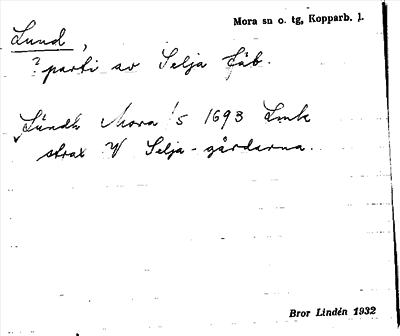 Mora sn o. tg, Kopparb. l.
Lund,
? parti av Selja fäb.
Lündh Mora 1/5 1693 Lmk
strax V Selja-gårdarna.
Bror Lindén 1932